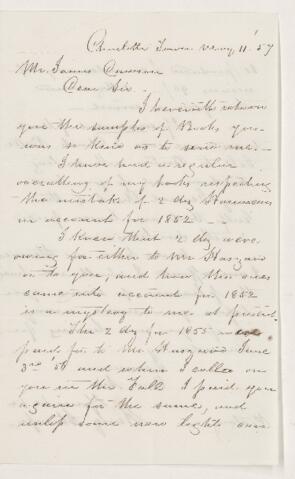 Charlotte Town 11' 57
Mr. James
Dear Sir.
I herewith return
you the samples of Books you
was so kind as to send me.—
I have had a regular
overhauling of my books respecting
the mistake of 2 dz
in account for 1852 —
I knew that 2 dz were
owing for either to Mr Haszard
or to you, and how this ones
came into account for 1852
is a mystery to me at present.
The 2 dz for 1855 were
paid for to Mr Haszard June
3rd 56 and when I called on
you in the Fall I paid you
again for the same, and
unless some new lights can